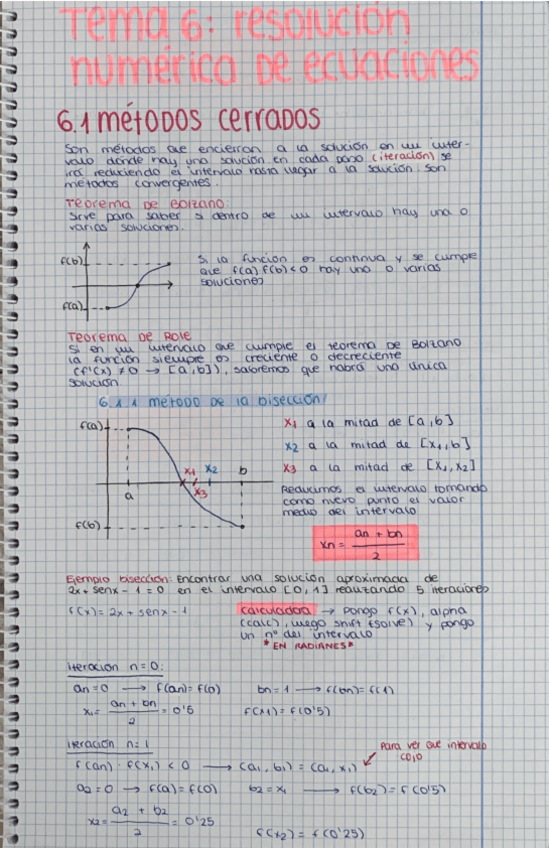 Tema 6: resolución
numérica de ecuaciones
6.1 métodos cerrados
Son métodos que encierran a la solución en un inter-
valo donde hay una solución en cada paso (iteración) se
irá reduciendo el intervalo hasta llegar a la solución. Son
métodos convergentes.
Teorema de Bolzano:
Sirve para saber si dentro de un intervalo hay una o
varias soluciones.
f(b)
f(a)
Si la función es continua y se cumple
que f(a).f(b)<0 hay una o varias
soluciones
Teorema de Role
Si en un intervalo que cumple el teorema de Bolzano
la función siempre es creciente o decreciente
(f'(x) ≠ 0 → [a,b]), sabremos que habrá una única
solución.
6.1.1 método de la bisección
f(a)
f(b)
a
x1
x2
x3
b
x1 a la mitad de [a,b]
x2 a la mitad de [x1,b]
x3 a la mitad de [x1,x2]
Reducimos el intervalo tomando
como nuevo punto el valor
medio del intervalo
xn = an + bn / 2
Ejemplo bisección: Encontrar una solución aproximada de
2x + senx - 1 = 0 en el intervalo [0,1] realizando 5 iteraciones
f(x) = 2x + senx - 1
calculadora → Pongo f(x), alpha
(calc), luego shift (solve) y pongo
un nº del intervalo
*EN RADIANES*
iteración n=0:
an=0 → f(an)=f(0) bn=1 → f(bn)=f(1)
x1 = an + bn / 2 = 0'5 f(x1)=f(0'5)
iteración n=1
f(an) · f(x1) < 0 → (a1, b1) = (a1, x1)
Para ver que intervalo
cojo
a2=0 → f(a)=f(0) b2=x1 → f(b2)=f(0'5)
x2 = a2 + b2 / 2 = 0'25
f(x2) = f(0'25)